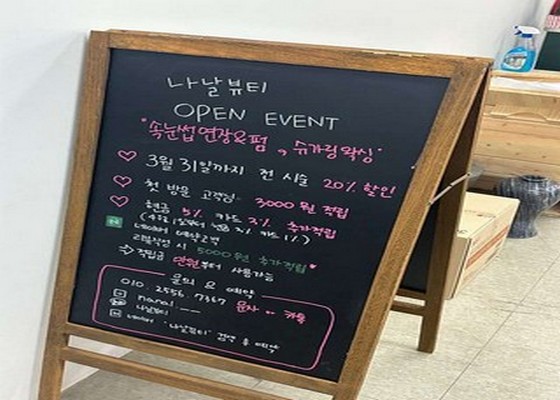 나날뷰티
OPEN EVENT
"속눈썹 연장&펌 , 슈가링 왁싱"
♡ 3월 31일까지 전 시술 20% 할인
♡ 첫 방문 고객님 3000원 적립
♡ 현금 5% 카드 3% 추가적립
(4월 1일부터 현금 3% 카드 1%)
네이버 예약고객
리뷰작성 시 5000원 추가적립 ♥
→ 적립금 만원부터 사용가능
문의 및 예약
010. 2556. 7367 문자 or 카톡
nanal
나날뷰티
네이버 "나날뷰티" 검색 후 예약